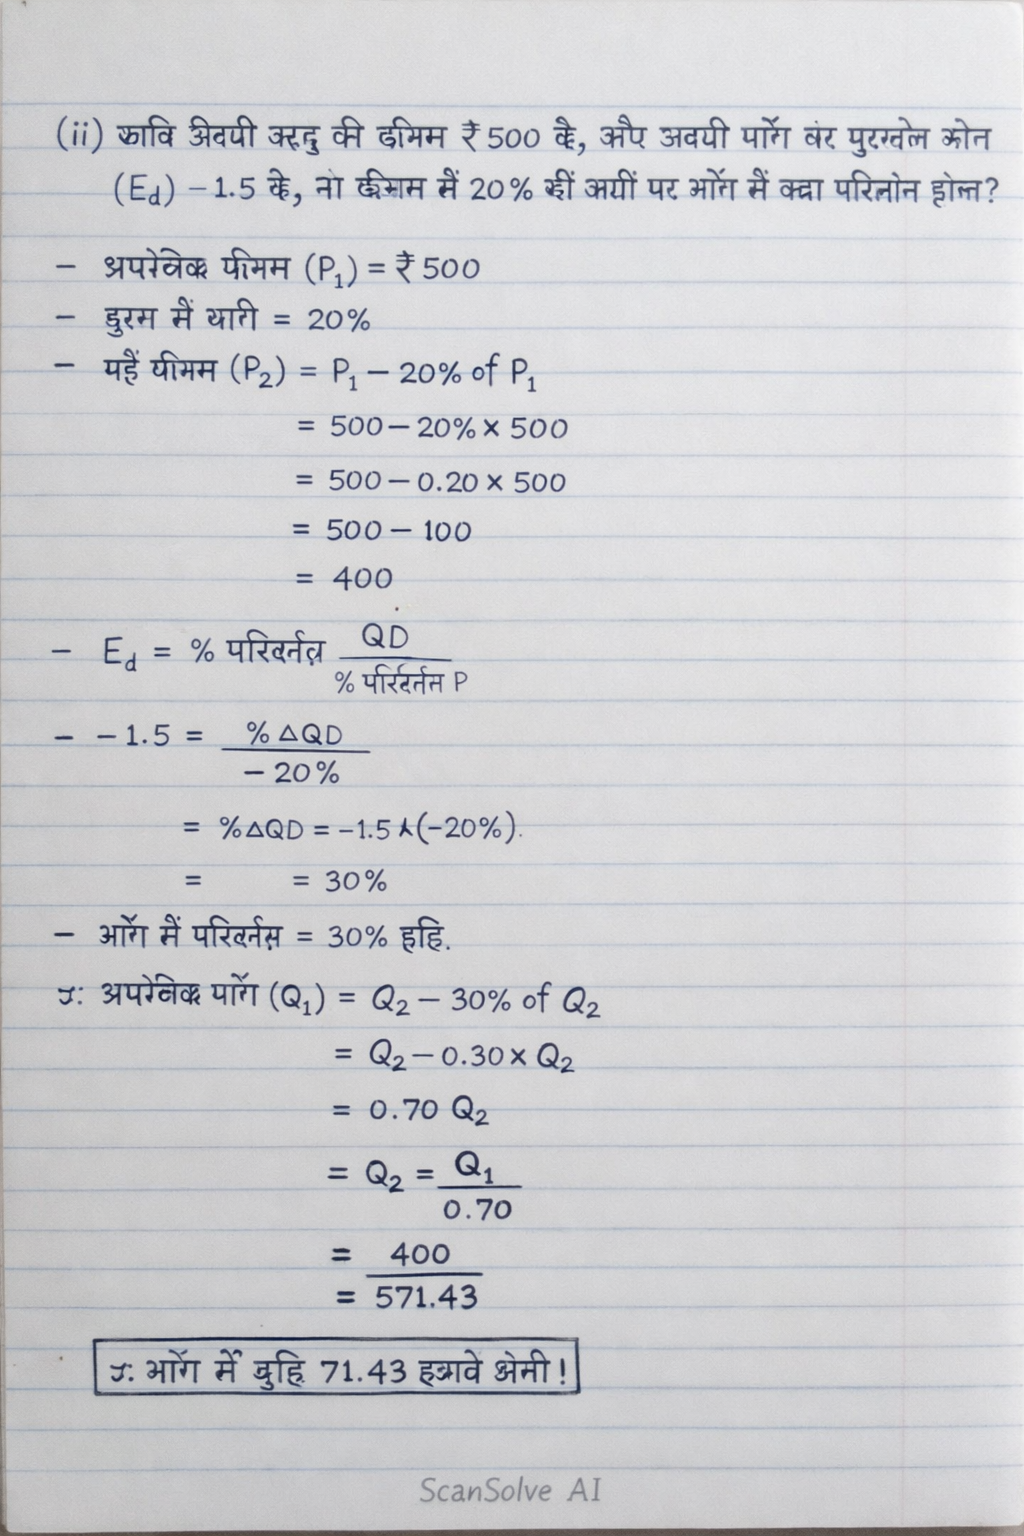 (ii) कावि अेवयी वहदु की ढीमम ₹500 है, औए अवयी पाँग वंर पुरखेल कोन
(Ed) -1.5 के, नो कीमम में 20% हीं अयीं पर भाँग में क्वा परिलोन होल?
- अपरेलिक फीमम (P₁) = ₹500
- डुरम में यागी = 20%
- पहैं यीमम (P₂) = P₁ - 20% of P₁
= 500 - 20% × 500
= 500 - 0.20 × 500
= 500 - 100
= 400
- Ed = % परिवर्नल QD
% परिर्दर्तस P
- -1.5 = % △QD
- 20%
= %△QD = -1.5 (-20%).
= = 30%
- भाँग में परिवर्नस = 30% हृहि.
अपरेलिक पाँग (Q₁) = Q₂ - 30% of Q₂
= Q₂ - 0.30 × Q₂
= 0.70 Q₂
= Q₂ = Q₁
0.70
= 400
= 571.43
भाँग में वुहि 71.43 हत्रावे श्रेमी!
ScanSolve AI